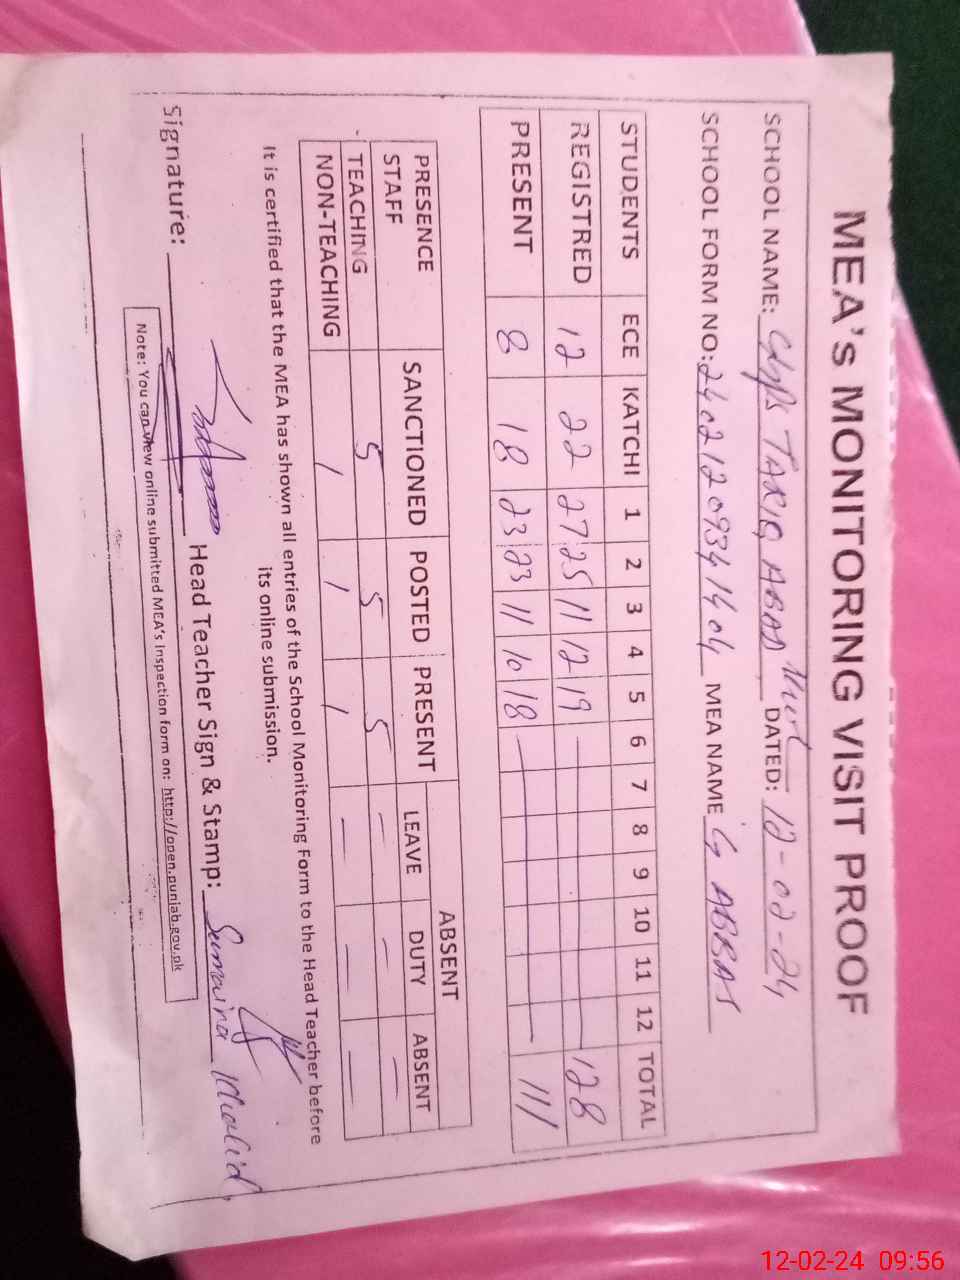 MEA's MONITORING VISIT PROOF
SCHOOL NAME: TARIQ ABAD DATED: 12-02-24
SCHOOL FORM NO: 24021209341404 MEA NAME G ABBAS
STUDENTS ECE KATCHI 1 2 3 4 5 6 7 8 9 10 11 12 TOTAL
REGISTRED 12 22 27 25 11 12 19 — 128
PRESENT 8 18 23 23 11 10 18 — 111
PRESENCE STAFF SANCTIONED POSTED PRESENT ABSENT
LEAVE DUTY ABSENT
TEACHING 5 5 5 — — —
NON-TEACHING 1 1 1 — — —
It is certified that the MEA has shown all entries of the School Monitoring Form to the Head Teacher before
its online submission.
Signature: Head Teacher Sign & Stamp: Khalid
Note: You can view online submitted MEA's Inspection form on: http://open.punjab.gov.pk
12-02-24 09:56